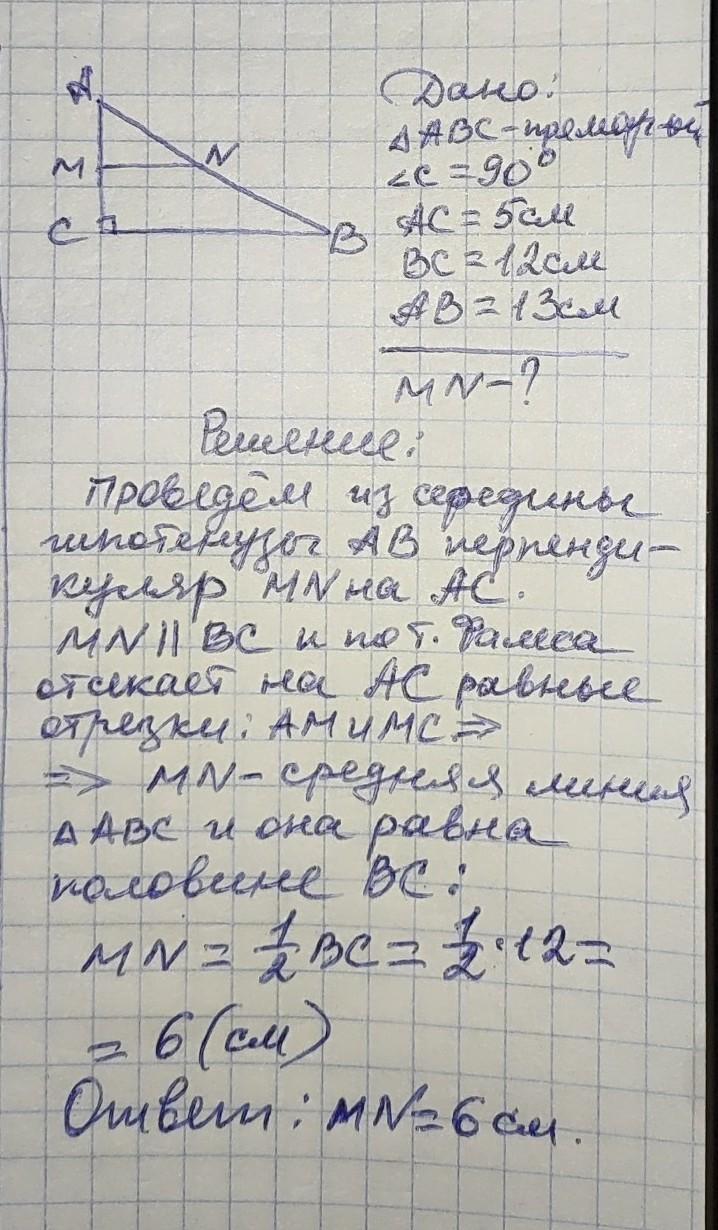 A
M
N
C
B
Дано:
△ABC - прямоуг-ый
∠C = 90°
AC = 5см
BC = 12см
AB = 13см
MN - ?
Решение:
Проведём из середины
гипотенузы AB перпенди-
куляр MN на AC.
MN || BC и по т. Фалеса
отсекает на AC равные
отрезки: AM и MC ⇒
⇒ MN - средняя линия
△ABC и она равна
половине BC:
MN = 1/2 BC = 1/2 · 12 =
= 6 (см)
Ответ: MN = 6 см.